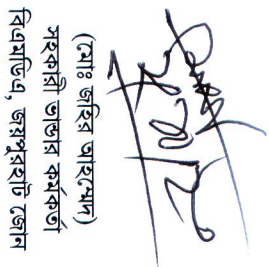 (মোঃ জহির আহম্মেদ)
সহকারী ভান্ডার কর্মকর্তা
বিএমডিএ, জয়পুরহাট জোন